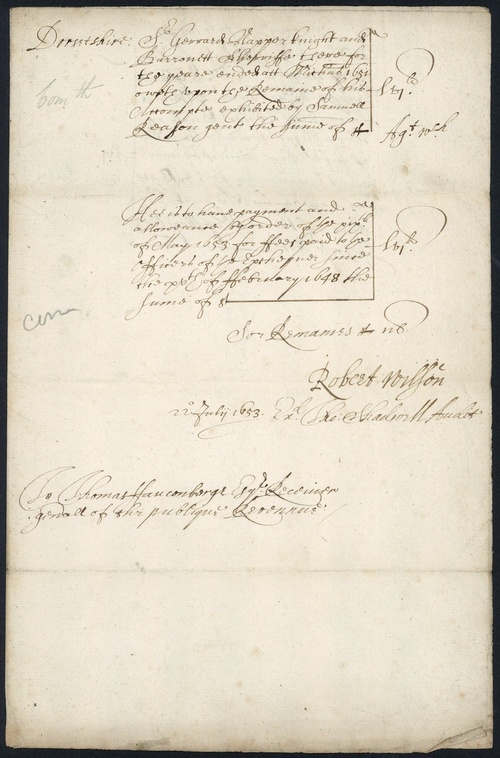 Dorsetshire. Sr. Gerrard Napper knight and
Barronett Sheriffe there for
the yeare ended att Michās 1651
oweth upon the Remane of his
Accompte exhibited by Samuell
Reason gent the sume of
Agt. wch
Hee is to have payment and
allowance by order of the
of May 1653 for ffees paid to the
officers of the Exchequer since
the of ffebruary 1648 the
sume of
Soe Remanes
Robert Wilson
22o July 1653. Exr. Tho: Shadwell Audr
To Thomas Fauconberge Esqr. Receiver
generall of the publique Revennue
Com